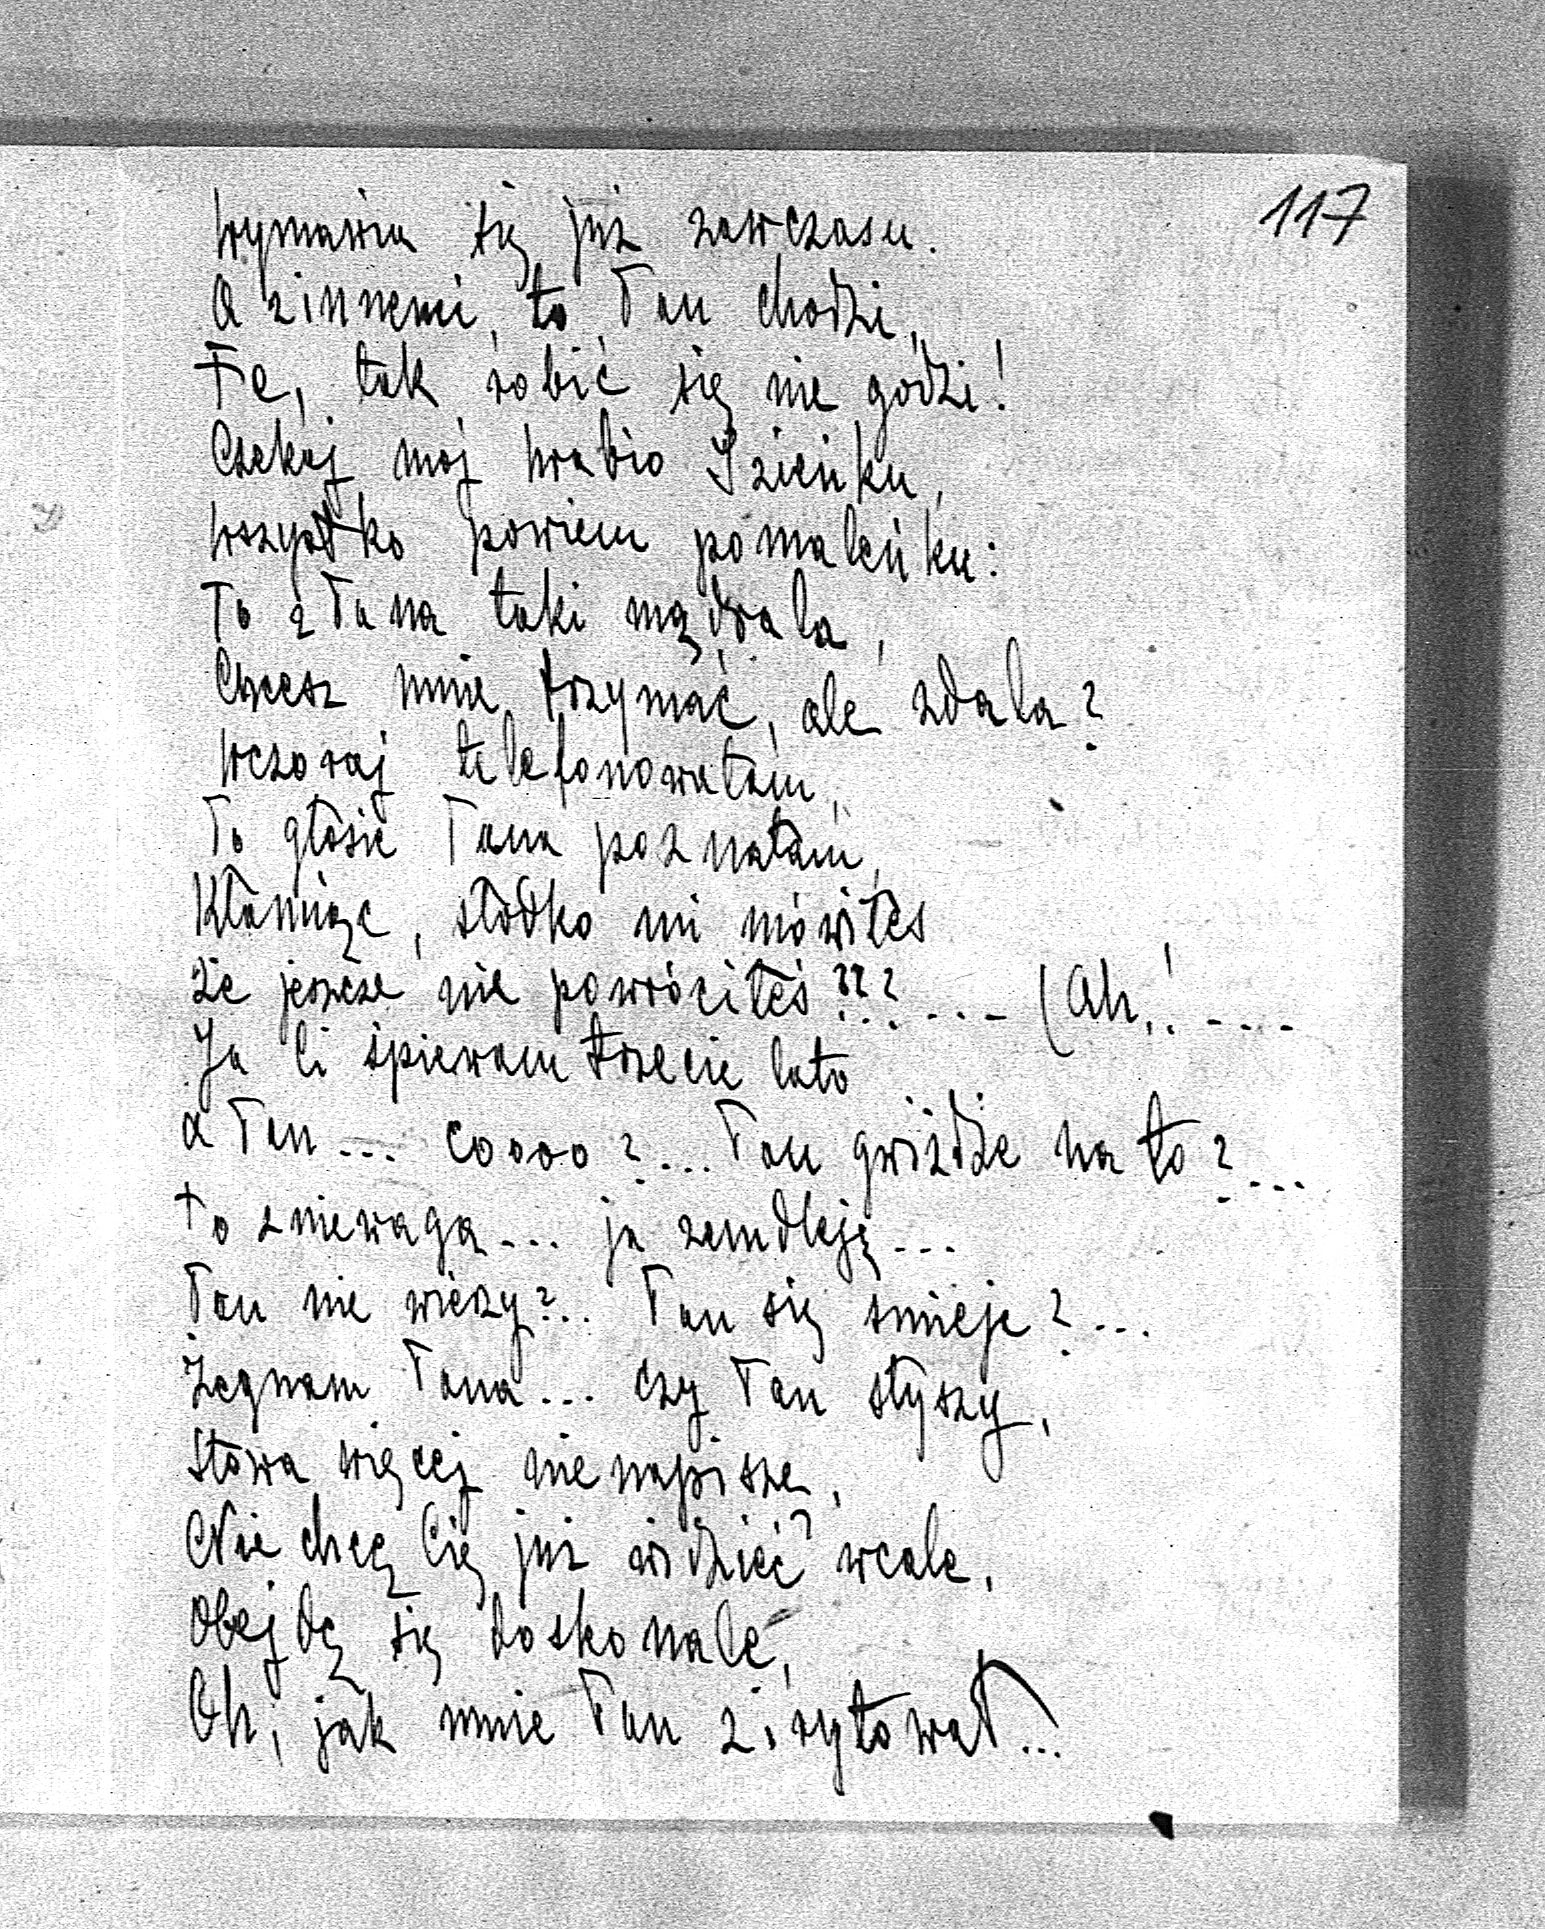 117
Wymawia się już zawczasu.
A zinnemi, to Pan chodzi,
Fe, tak robić się nie godzi!
Czekaj moj hrabio Izieńku,
Wszystko powiem pomaleńku:
To z Pana taki mądrala,
Chcesz mnie trzymać, ale zdala?
Wczoraj telefonowałam,
Po głosie Pana poznałam,
Kłamiąc, słodko mi mówiłeś
Że jeszcze nie powróciłeś??? ... – (Ah,! – ...
Ja Ci śpiewam trzecie lato
a Pan ... coooo? ... Pan gwiżdże na to? ...
To zniewaga ... ja zemdleję ...
Pan nie wierzy? .. Pan się śmieje? ...
Żegnam Pana ... czy Pan słyszy,
Słowa więcej nie napiszę,
Nie chcę Cię już widzieć wcale,
Obejdę się doskonale,
Oh, jak mnie Pan zirytował ...